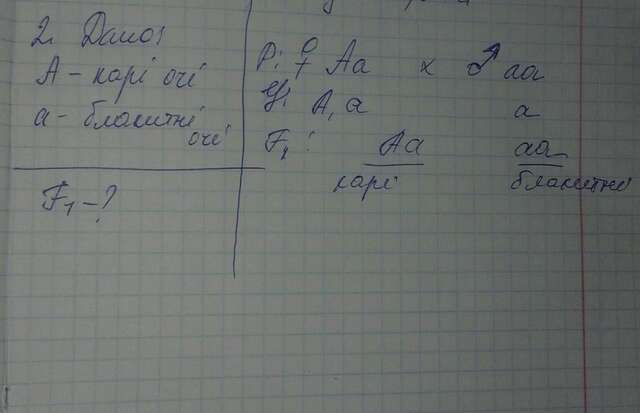 2. Дано:
А – карі очі
а – блакитні
очі
F₁ – ?
P: ♀ Aa x ♂ aa
G: A, a a
F₁: Aa aa
карі блакитні